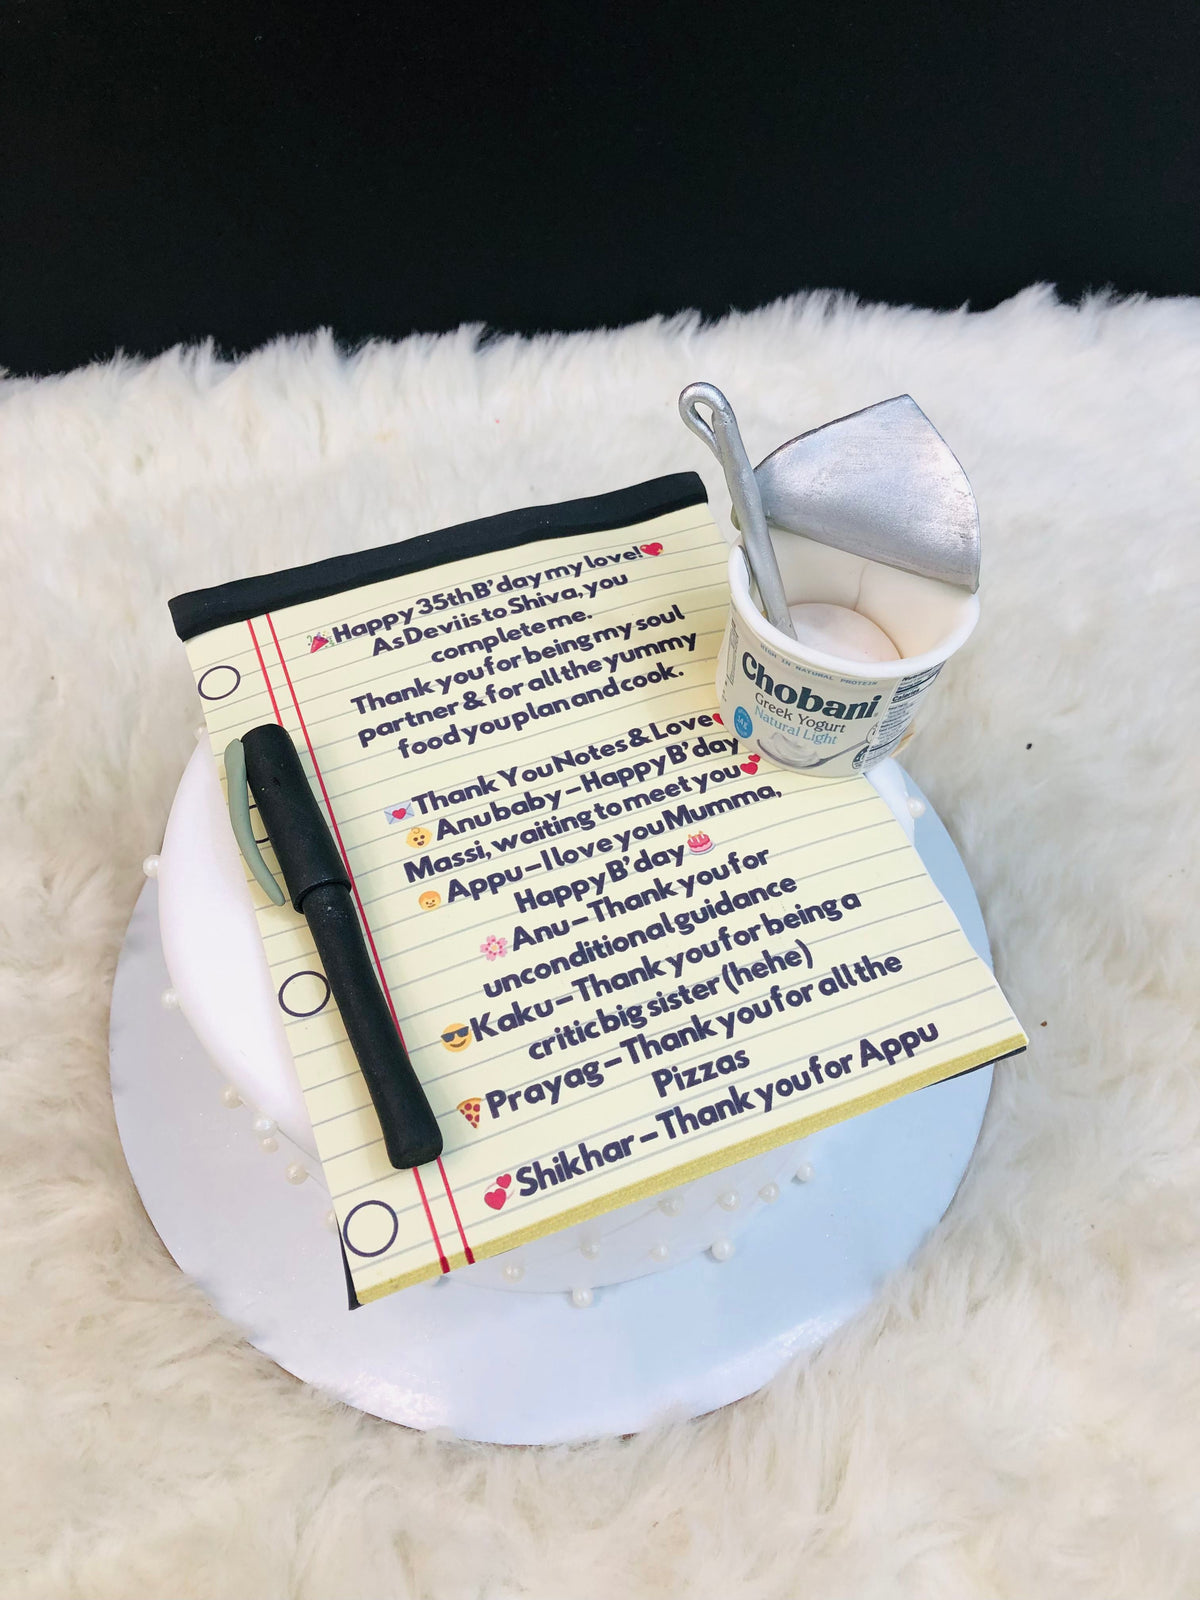 🎉Happy 35th B'day my love!❤️
As Devi is to Shiva, you
complete me.
Thank you for being my soul
partner & for all the yummy
food you plan and cook.
💌Thank You Notes & Love❤️
👶Anu baby – Happy B'day
Massi, waiting to meet you💕
👦Appu – I love you Mumma,
Happy B'day🎂
🌸Anu – Thank you for
unconditional guidance
😎Kaku – Thank you for being a
critic big sister (hehe)
🍕Prayag – Thank you for all the
Pizzas
💞Shikhar – Thank you for Appu
HIGH IN NATURAL PROTEIN
Chobani
Greek Yogurt
Natural Light
Calories